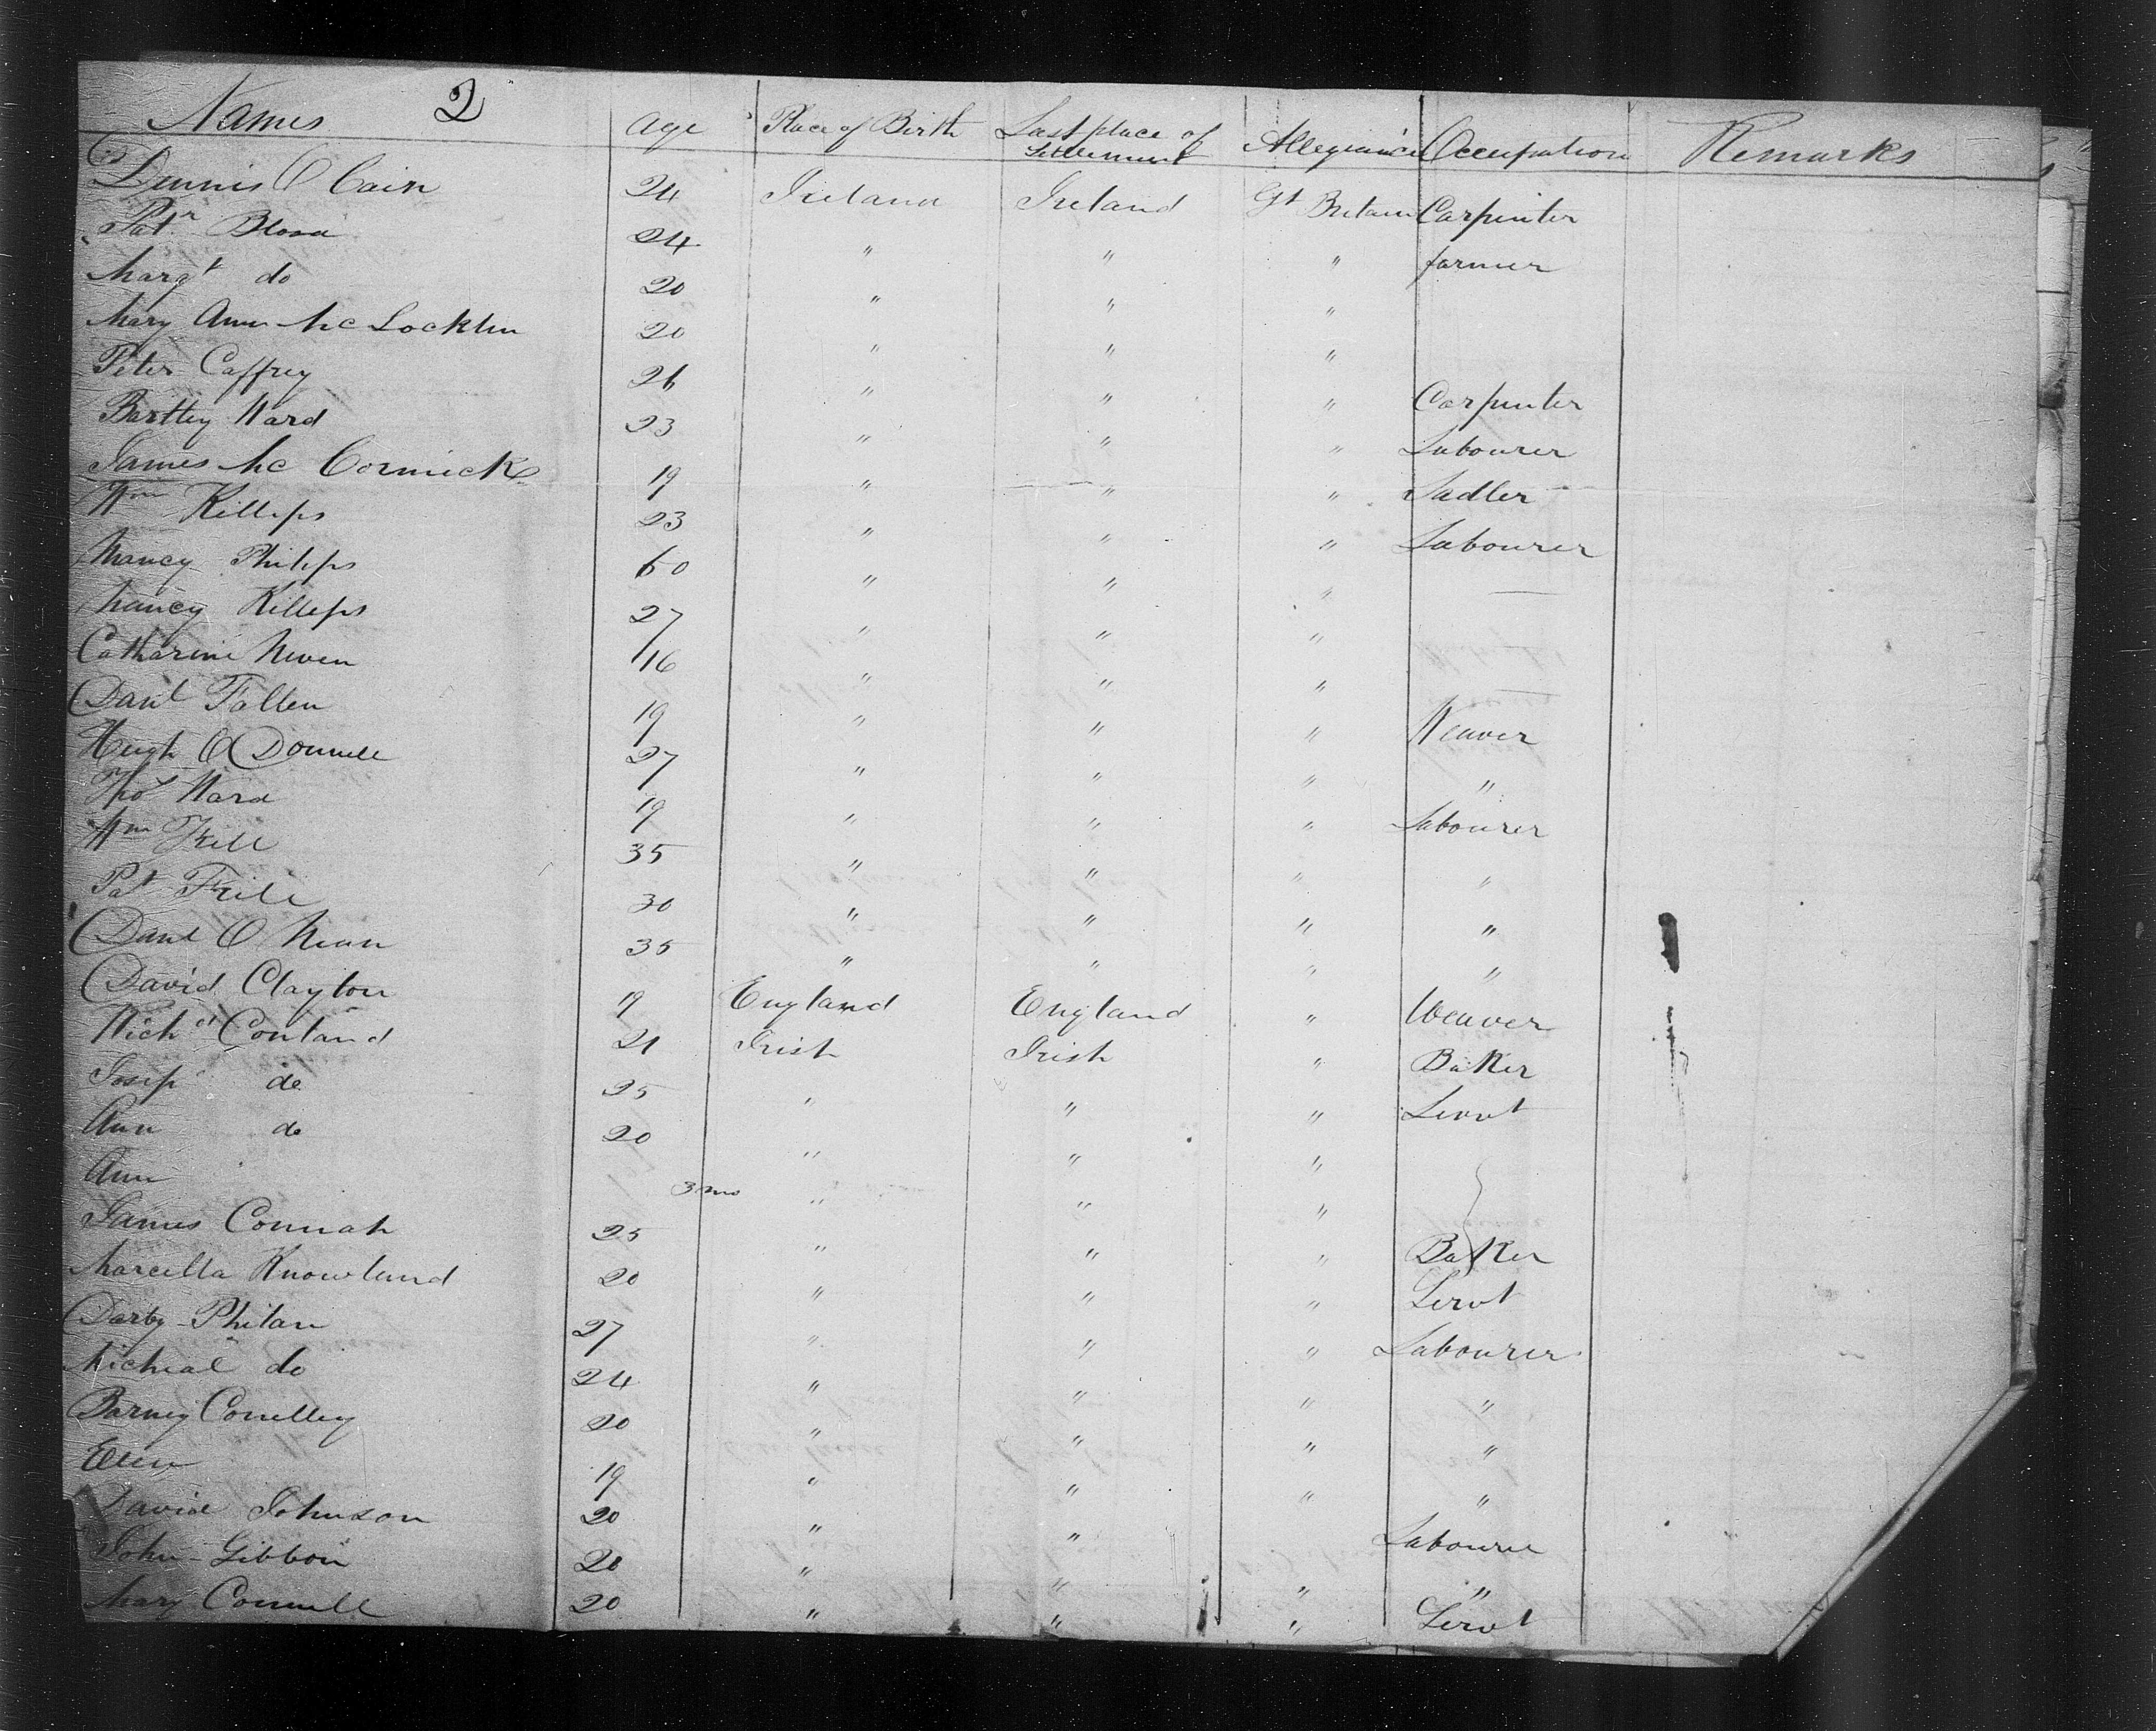 Names 2 Age Place of Birth Last place of Settlement Allegiance Occupation Remarks
Dennis O Cain 24 Ireland Ireland Gt Britain Carpenter
Patr 24 " " " farmer
Margt do 20 " " "
Mary Ann Mc Locklin 20 " " "
Peter Caffrey 26 " " " Carpenter
Bartley Ward 23 " " " Labourer
James Mc Cormick 19 " " " Sadler
Wm Killips 23 " " " Labourer
Nancy Philips 60 " " " —
Nancy Killips 27 " " "
Catharine Niven 16 " " "
Danl Fallen 19 " " " Weaver
Hugh O Donnell 27 " " " "
Thos Ward 19 " " " Labourer
Wm 35 " " " "
Pat Frile 30 " " " "
Danl O 35 " " " "
David Clayton 19 England England " Weaver
Richd Conland 21 Irish Irish " Baker
Josep do 25 " " " Servt
Ann do 20 " " "
Ann 3 mo " " "
James Connah 25 " " " Baker
Marcella Knowland 20 " " " Servt
Darby Philan 27 " " " Labourer
Micheal do 24 " " " "
Barney Conelley 20 " " " "
Ellen 19 " " " "
David Johnson 20 " " Labourer
John Gibbon 20 " " " "
Mary Connell 20 " " " Servt